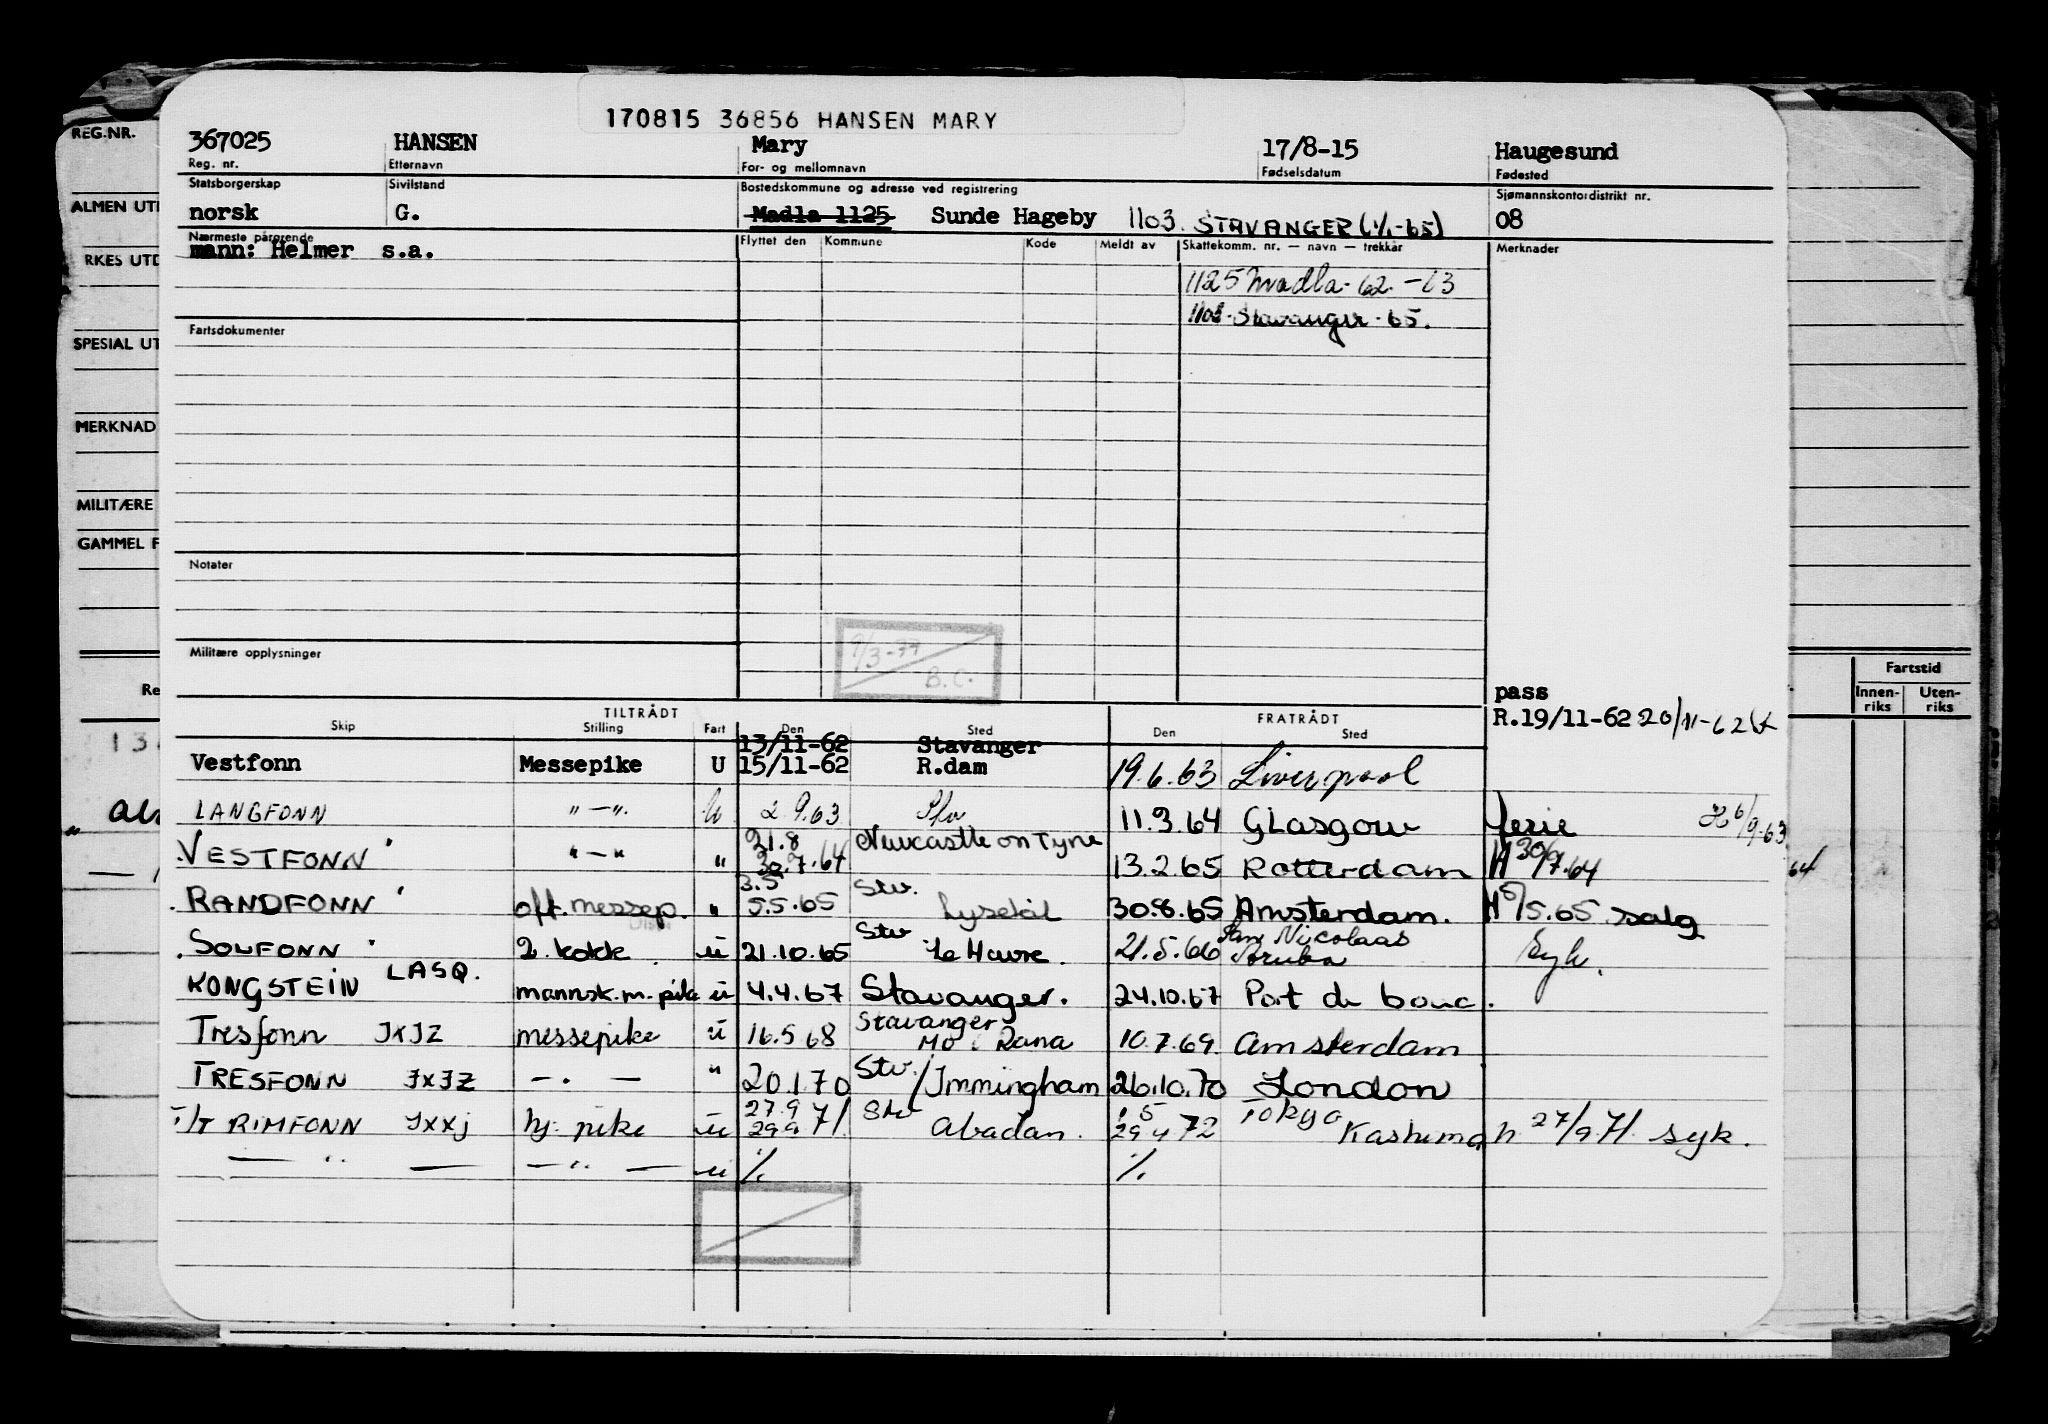 170815 36856 HANSEN MARY
REG.NR.
367025 HANSEN Mary 17/8-15 Haugesund
Reg. nr. Etternavn For- og mellomnavn Fødselsdatum Fødested
Statsborgerskap Sivilstand Bostedskommune og adresse ved registrering Sjømannskontordistrikt nr.
ALMEN UT
norsk G. Madla 1125 Sunde Hageby 1103 STAVANGER (1/1-65) 08
Nærmeste pårørende Flyttet den Kommune Kode Meldt av Skattekomm. nr. — navn — trekkår Merknader
RKES UTD
mann: Helmer s.a.
1125 Madla-62-63
1103-Stavanger-65.
Fartsdokumenter
SPESIAL UT
MERKNAD
MILITÆRE
GAMMEL F
Notater
Militære opplysninger
9/3-77
B.C.
Fartstid
Innen-riks Uten-riks
Re
pass
TILTRÅDT FRATRÅDT R.19/11-62 20/11-62
Skip Stilling Fart Den Sted Den Sted
13/11-62 Stavanger
Vestfonn Messepike U 15/11-62 R.dam 19.6.63 Liverpool
LANGFONN "—" U 2.9.63 Stv 11.3.64 GLasgow ferie 6/9-63
VESTFONN "—" " 21.8 30.7.64 Newcastle on Tyne 13.2.65 Rotterdam H 30/7.64
RANDFONN off. messep. " 3.5 5.5.65 Stv. Lysekil 30.8.65 Amsterdam. H 5/5.65 salg
SOLFONN 2. kokk ü 21.10.65 Stv Le Havre. 21.5.66 San Nicolaas Aruba Syk.
KONGSTEIN LASQ. mannsk.m.pike ü 4.4.67 Stavanger. 24.10.67 Port de bouc.
Tresfonn JXJZ messepike ü 16.5 68 Stavanger Mo i Rana 10.7.69. Amsterdam
TRESFONN JXJZ —.— " 20.1.70 Stv./Immingham 26.10.70 London
T/T RIMFONN JXXJ hj. pike ü 27.9 29.9 71. Stv Abadan. 1.5 29.4 72 Tokyo Kashima h 27/9.71. syk.
— " — — " — ü %. %.